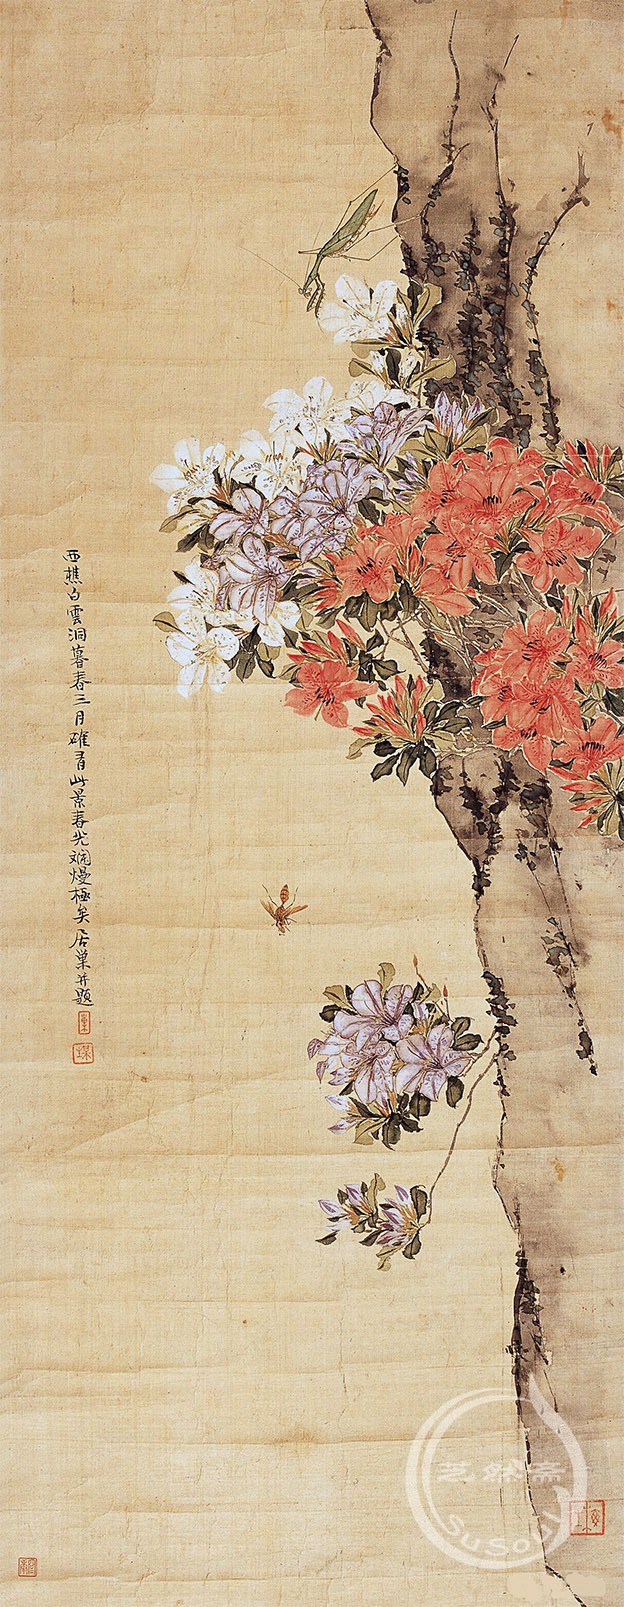 西樵白雲洞暮春三月確有此景春光斕熳極矣居巢并題
巢
芝然斋
SuSoo